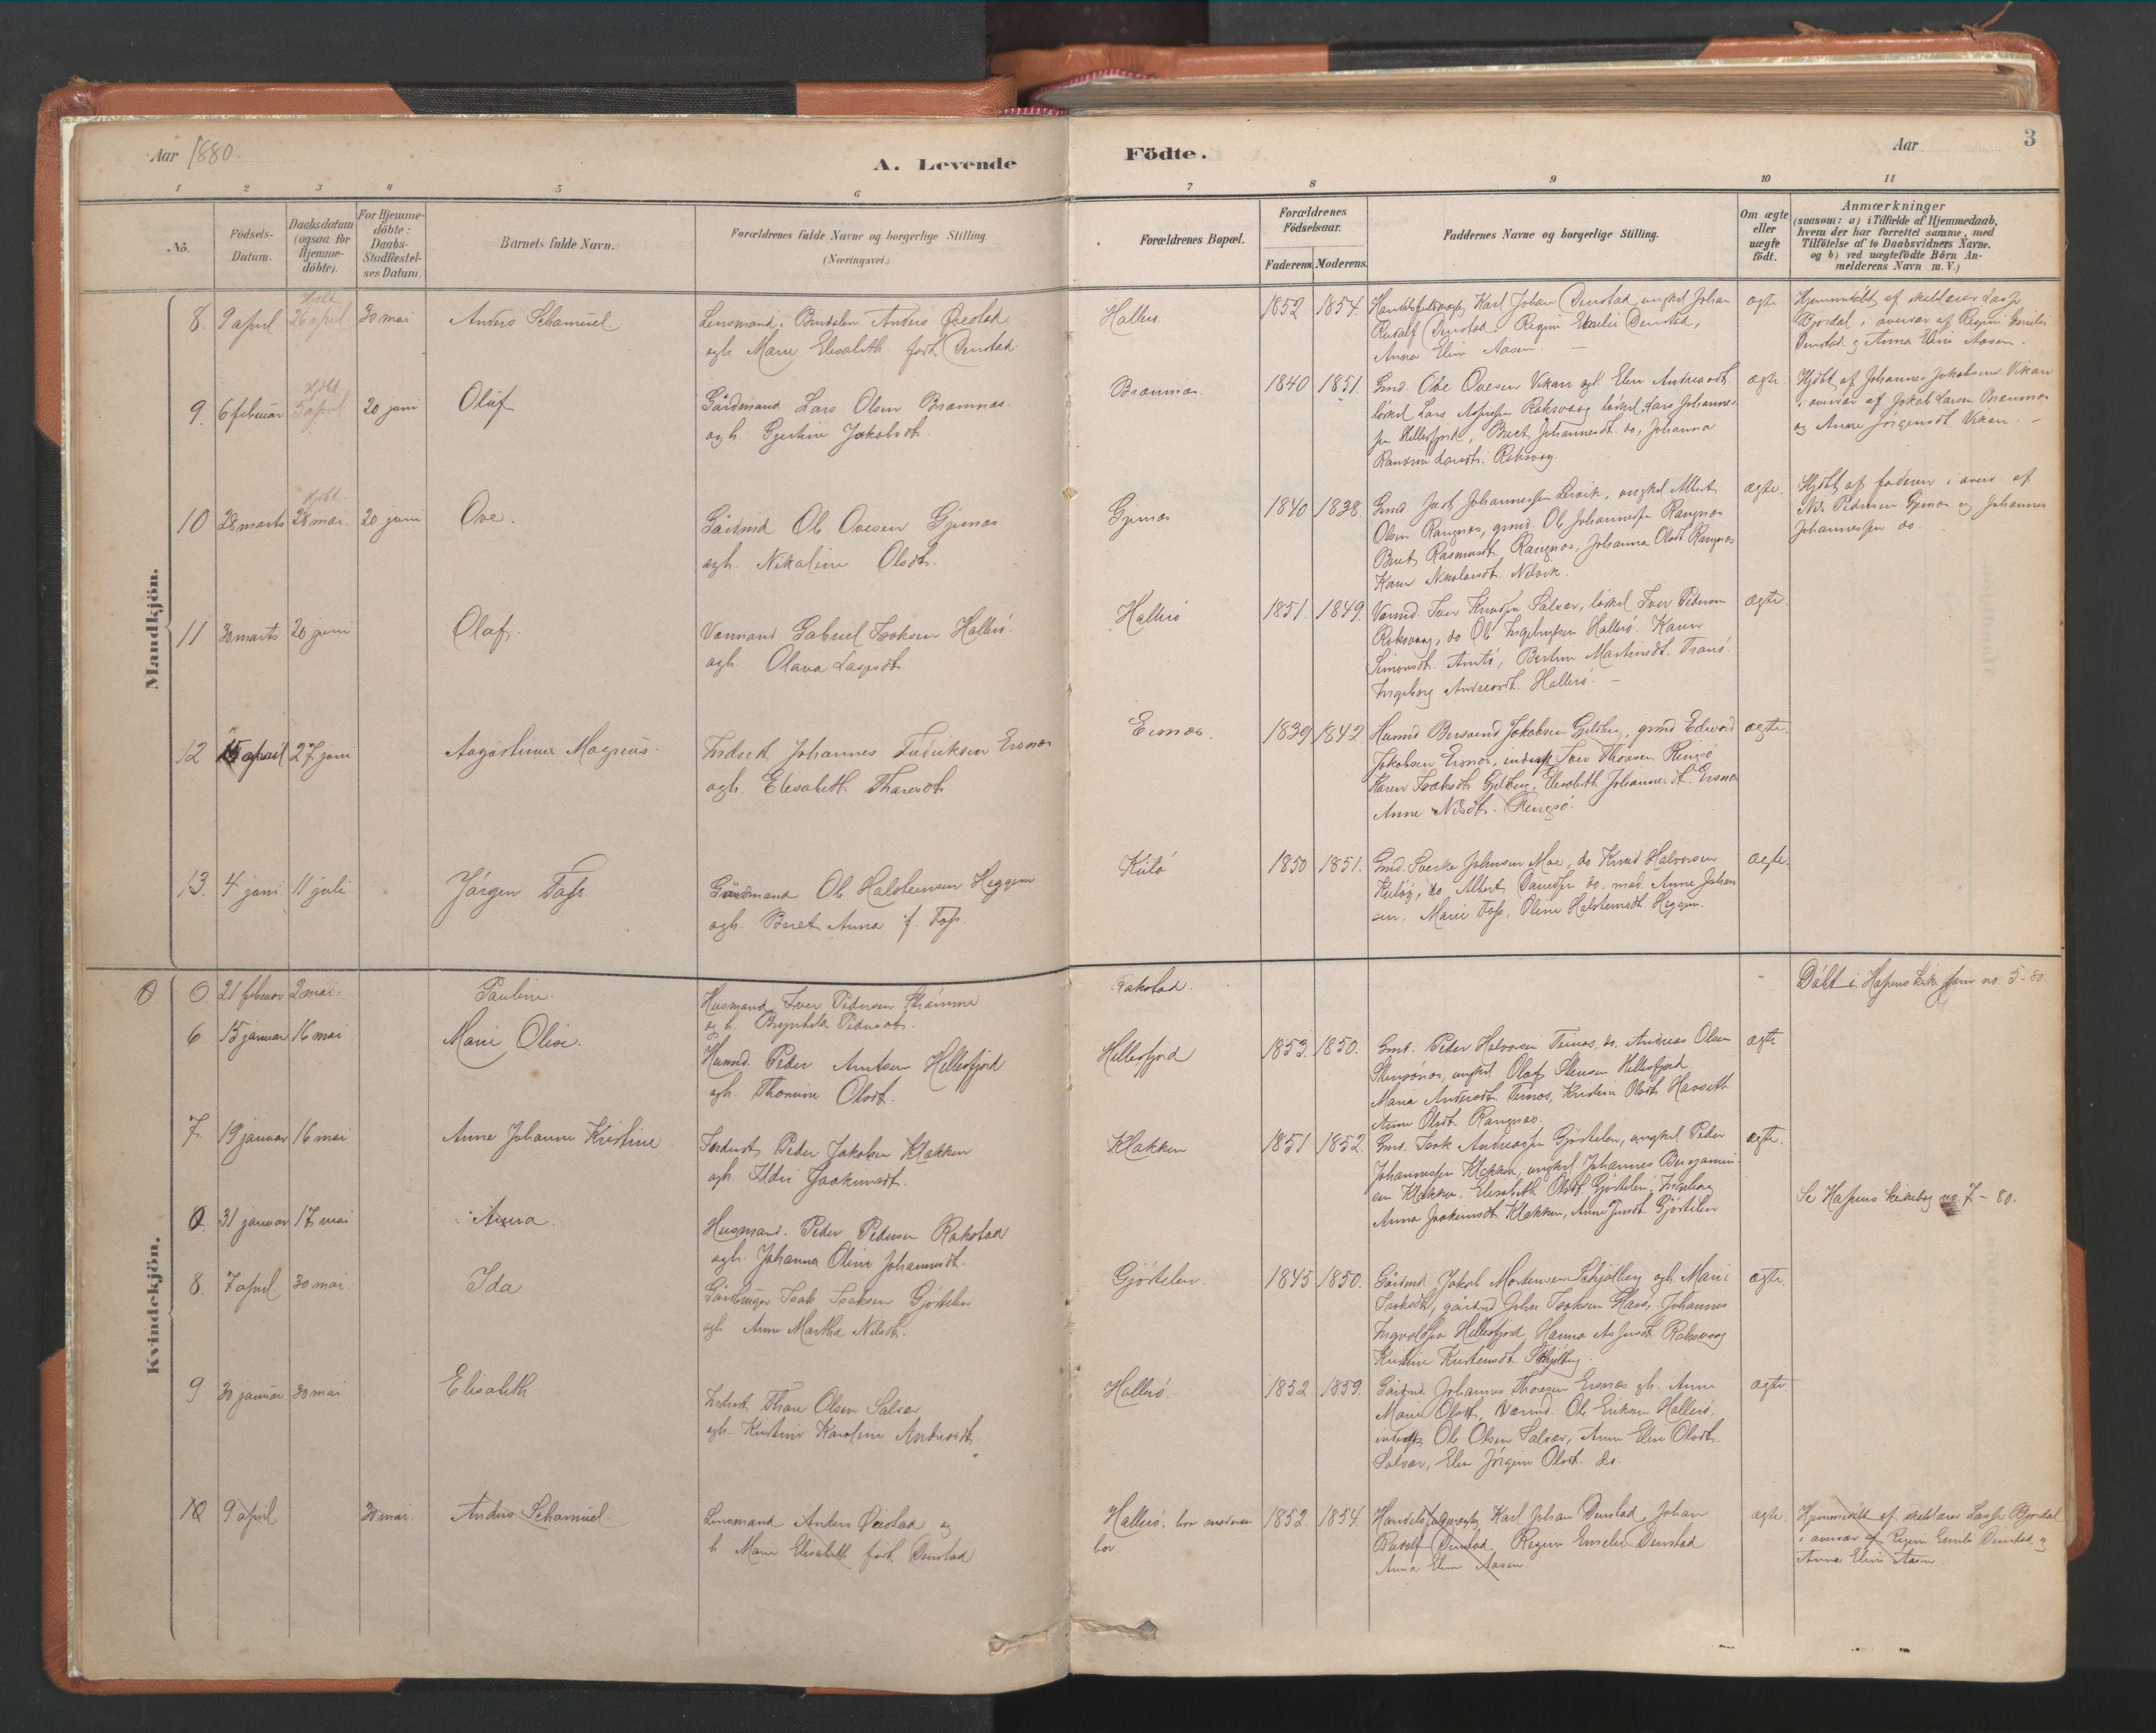 Aar 1880.
A. Levende
Födte.
Aar
3
1 2 3 4 5 6 7 8 9 10 11
No.
Födsels-Datum.
Daabsdatum (ogsaa for Hjemme-döbte).
For Hjemme-döbte: Daabs-Stadfæstel-ses Datum.
Barnets fulde Navn.
Forældrenes fulde Navne og borgerlige Stilling
(Næringsvei.)
Forældrenes Bopæl.
Forældrenes Födselsaar.
Faderens Moderens.
Faddernes Navne og borgerlige Stilling.
Om ægte eller uægte födt.
Anmærkninger
(saasom: a) i Tilfælde af Hjemmedaab,
hvem der har forrettet samme, med
Tilföielse af to Daabsvidners Navne.
og b) ved uægtefödte Börn An-
melderens Navn m. V.)
Mandkjön.
8. 9 april 26 april 30 mai Anders Schamuel
Lensmand i Anders Øvestad
agh. Marie Elisabeth født Denstad
1852 1854.
Karl Johan Denstad, ungkal Johan
Rudolf Denstad Regine Emilie Denstad,
Anna Eline Aasen. —
ægte
Hjemmedøbt af skolelærer Lasse
Bjordal i overvær af Regine Emilie
Denstad og Anna Eline Aasen.
9. 6 februar 5 april 20 juni Oluf
Gårdmand Lars Olsen Bremnes
agh. Gjertine Jakobsdt.
Bremnes
1840 1851.
Gmd. Ove Ovesen Vikan agh. Elen Andreasdt.
løskal Lars Roksvaag løskal Lars Johannes-
sen Hellesfjord, Beret Johannesdt. do, Johanna
Larsdt. Roksvaag
ægte.
Hjdbt af Johannes Jakobsen Vikan
i overvær af Jakob Larsen Bremnes
og Anne Jørgensdt. Vikan. —
10 28 marts 28 mai. 20 juni Ove.
Gårdmd Ole Ovesen Gjennæs
agh. Nikoline Olsdt.
Gjenæs
1840 1838.
Gmd Johannessen Lervik, ungkal Albert
Olsen Rangnæs, gmd. Ole Johannessen Rangnæs
Beret Rasmusdt. Rangnæs, Johanna Olsdt Rangnæs
Karen Nikolaisdt.
ægte.
Hjdbt af faderen i overv. af
Nils Pedersen Gjenæs og Johannes
Johannessen do.
11 30 marts 20 juni Olaf.
Gabriel Isaksen Hallerö.
agh. Olava Lassesdt.
Hallerö
1851. 1849.
Iver Knudsen Salvær, løskal Iver Pedersen
Roksvaag, do Ole Ingebrigtsen Hallerö. Karen
Simonsdt. Bertine Martinsdt.
Ingeborg Andreasdt. Hallerö. —
ægte.
12 15 april 27 juni Augustinus Magnus.
Inderst Johannes Fredriksen Ersnæs
agh. Elisabeth Tharesdt.
Ersnæs.
1839 1842
Husmd Jakobsen Gjelberg, gmd Edvard
Jakobsen Ersnæs, inderst Iver Thoresen Ringsö
Karen Isaksdt Gjelberg, Elisabeth Johannesdt. Ersnæs
Anne Nilsdt. Ringsö.
ægte.
13. 4 juni 11 juli Jörgen Foss.
Gårdmand Ole Halsteinsen Heggem
agh. Beret Anna f. Foss.
Kulö
1850 1851.
Gmd. Sverke Johnsen Moe, do Knud Halvorsen
Kulöy, do Albert do. mad. Anne Johan-
sen. Marie Foss, Oline Halsteinsdt Heggem.
ægte.
Kvindekjön.
0. 0. 21 februar 2 mai. Pauline.
Husmand Iver Pedersen
og h. Brynhild Pedersdt.
Rakstad.
Döbt i kirke no. 5-80.
6 15 januar 16 mai Marie Olive.
Husmd. Peder Arntsen Hellesfjord
agh. Thomine Olsdt.
Hellesfjord
1853. 1850.
Gmd. Peder Halvorsen do. Andreas Olsen
ungkal Olaf Hellesfjord
Maria Andersdt. Kristine Olsdt. Havseth
Anne Olsdt. Rangnæs
ægte
7. 19 januar 16 mai Anne Johanne Kristine
Inderst Peder Jakobsen Klakken
agh. Ildri Joakimsdt.
Klakken
1851 1852.
Gmd. Isak Andreassen Gjörtelen, ungkal Peder
Johannessen Klakken, ungkal Johannes Benjamin-
sen Klakken. Elisabeth Olsdt Gjörtelen,
Anna Joakimsdt. Klakken, Anne Gjörtelen
ægte.
0. 31 januar 17 mai Anna.
Husmand. Peder Pedersen Rakstad
agh. Johanna Oline Johannesdt.
Se kirkebog no. 7-80.
8. 7 april 30 mai Ida
Isak Isaksen Gjörtelen
agh. Anne Martha Nilsdt.
Gjörtelen.
1845 1850.
Gårdmd. Jakob Mortensen Schjölberg agh. Marie
Isaksdt, gårdmd John Isaksen Johannes
Ingvoldsen Hellesfjord, Hanna Roksvaag
Kristine
ægte.
9 30 januar 30 mai Elisabeth
Inderst Thore Olsen Salvær
agh. Kristine Karoline Andreasdt.
Hallerö.
1852 1859.
Gårdmd. Johannes Thoresen Ersnæs agh. Anne
Marie Olsdt, Ole Eriksen Hallerö,
Ole Olsen Salvær, Anne Eline Olsdt.
Salvær, Elen Jörgine Olsdt. do.
ægte.
10 9 april 30 mai. Anders Schamuel.
Lensmand Anders Øvestad og
h. Marie Elisabeth født Denstad
Hallerö, hvor moderen
bor
1852. 1854.
Karl Johan Denstad, Johan
Rudolf Denstad Regine Emelie Denstad
Anna Eline Aasen.
ægte.
Hjemmedøbt af skolelærer Lasse Bjordal
i overvær af Regine Emilie Denstad og
Anna Eline Aasen.